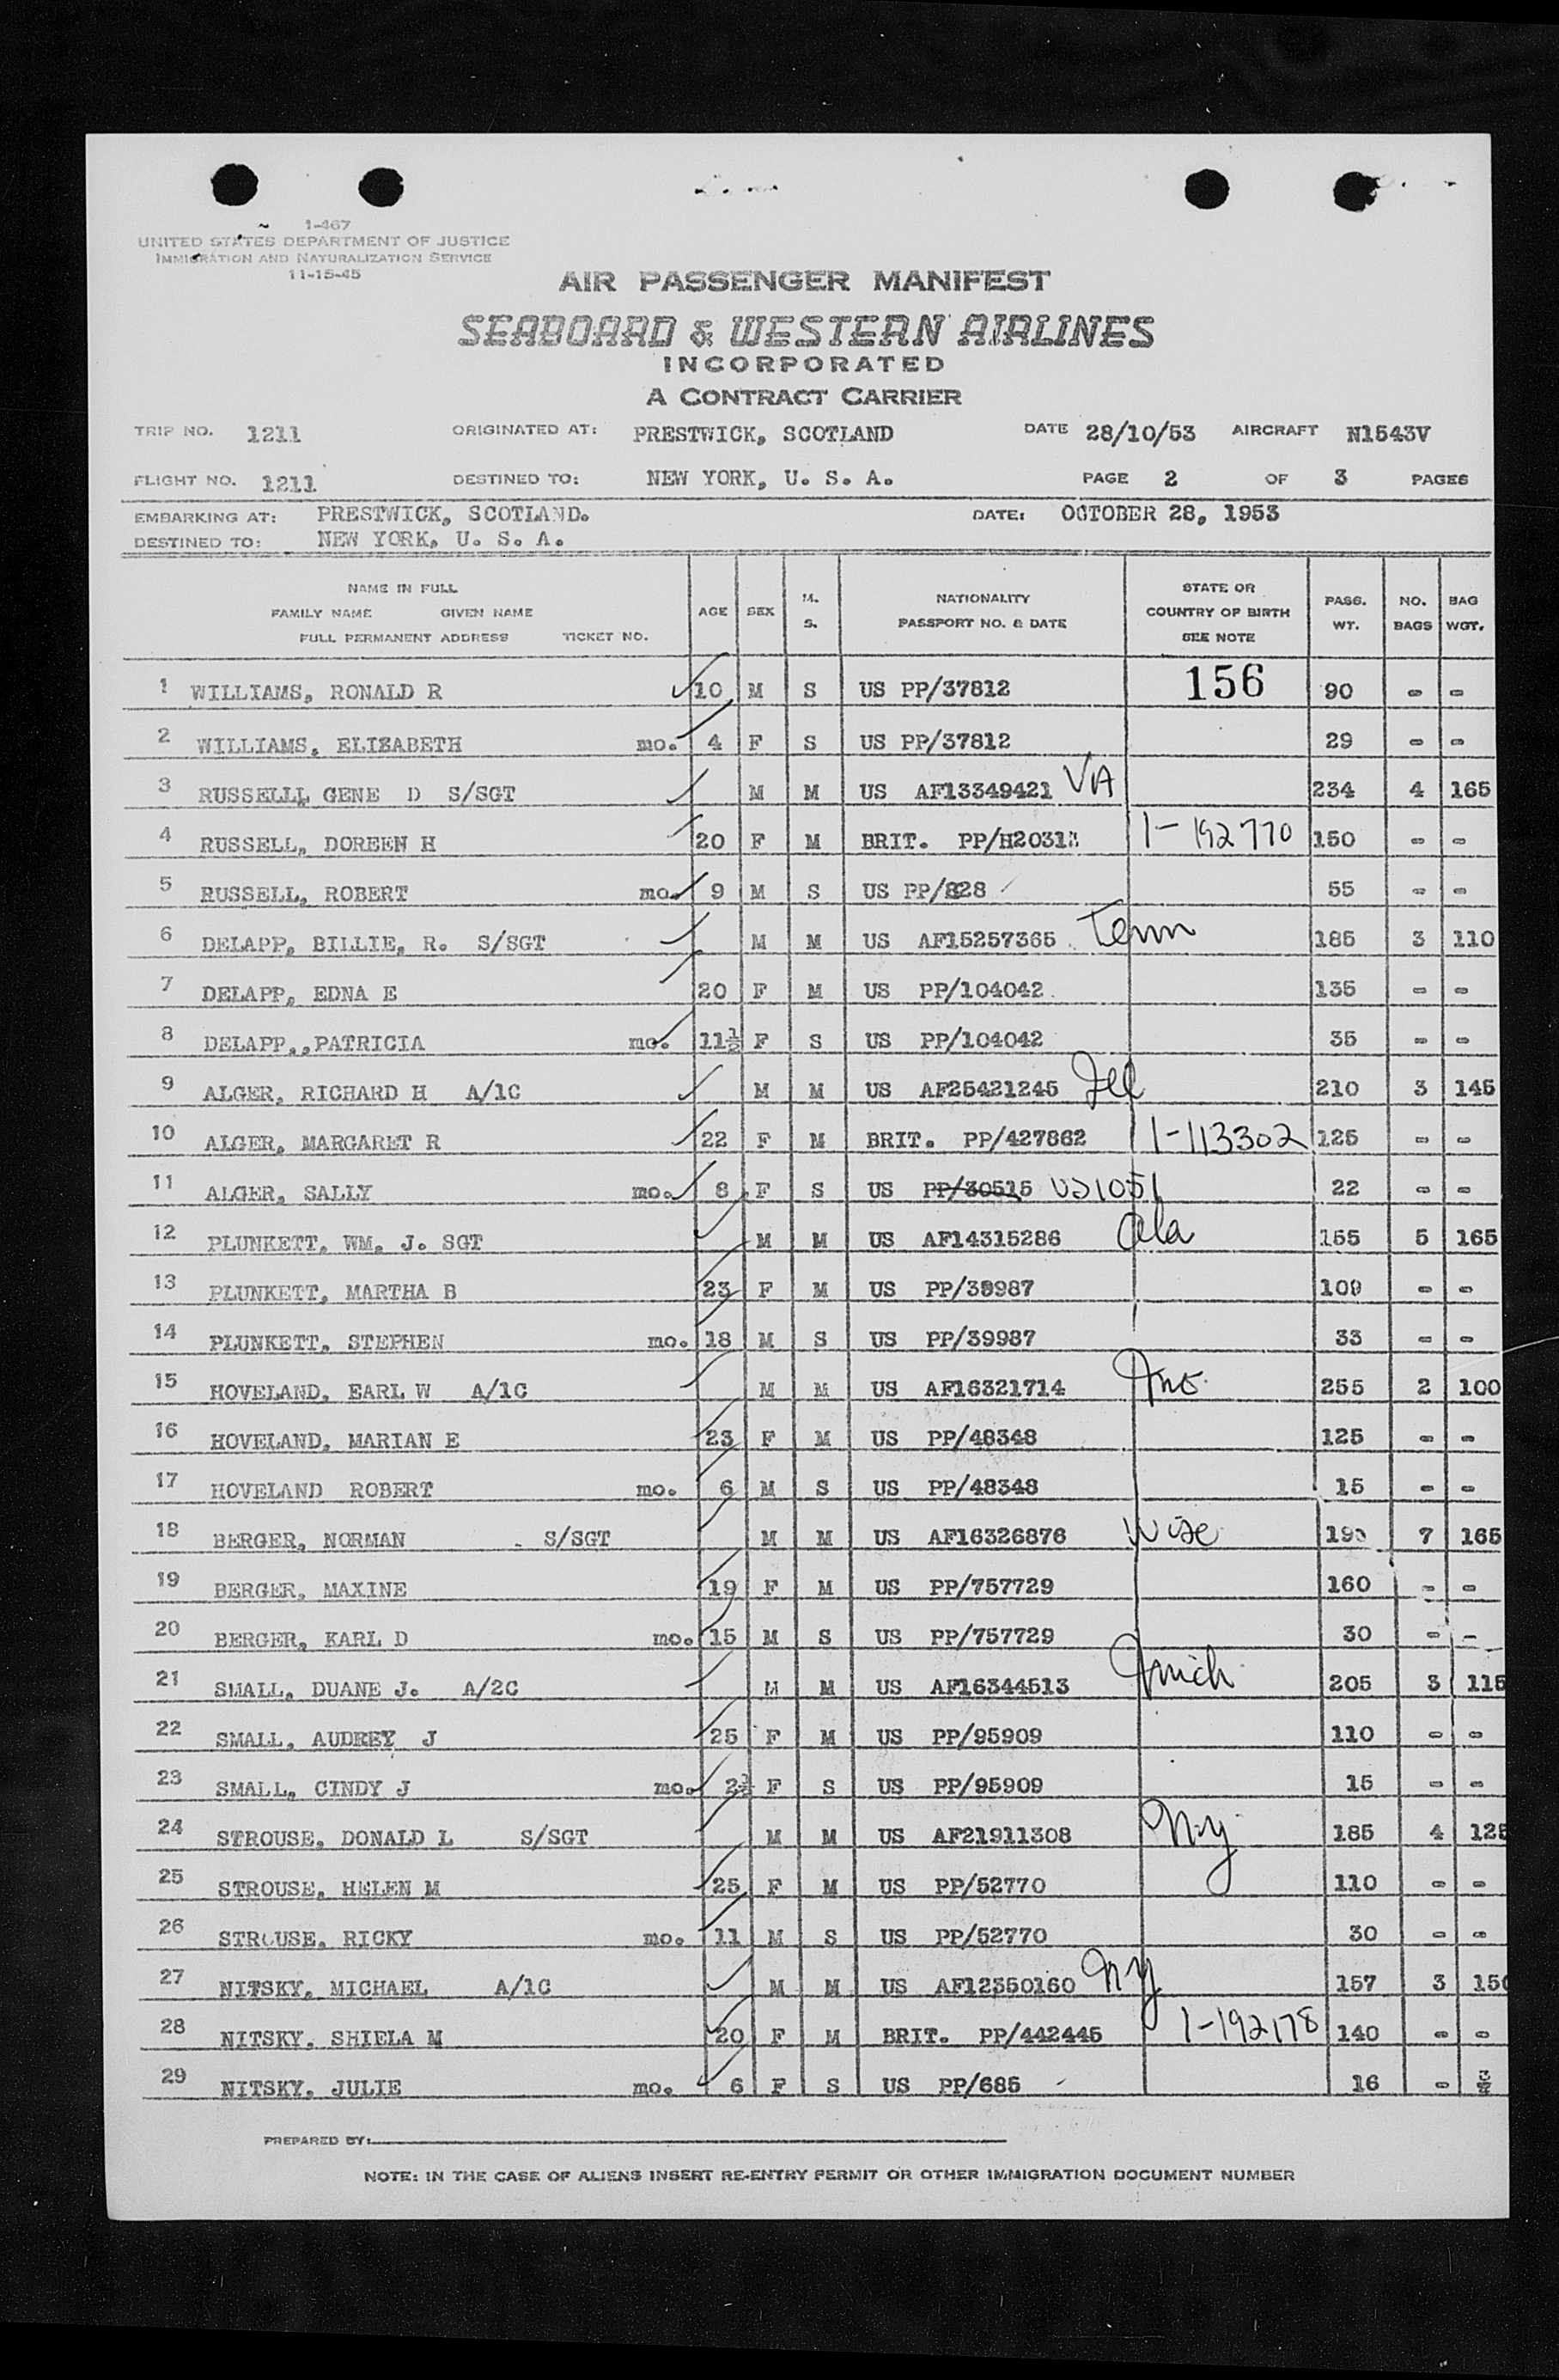 1-467
UNITED STATES DEPARTMENT OF JUSTICE
IMMIGRATION AND NATURALIZATION SERVICE
11-15-45
AIR PASSENGER MANIFEST
SEABOARD & WESTERN AIRLINES
INCORPORATED
A CONTRACT CARRIER
TRIP NO. 1211 ORIGINATED AT: PRESTWICK, SCOTLAND DATE 28/10/53 AIRCRAFT N1543V
FLIGHT NO. 1211 DESTINED TO: NEW YORK, U. S. A. PAGE 2 OF 3 PAGES
EMBARKING AT: PRESTWICK, SCOTLAND. DATE: OCTOBER 28, 1953
DESTINED TO: NEW YORK, U. S. A.
NAME IN FULL
FAMILY NAME GIVEN NAME
FULL PERMANENT ADDRESS TICKET NO.
AGE SEX M. S.
NATIONALITY
PASSPORT NO. & DATE
STATE OR
COUNTRY OF BIRTH
SEE NOTE
PASS. WT.
NO. BAGS
BAG WGT.
1 WILLIAMS, RONALD R 10 M S US PP/37812 156 90 - -
2 WILLIAMS, ELIZABETH mo. 4 F S US PP/37812 29 - -
3 RUSSELL, GENE D S/SGT M M US AF13349421 VA 234 4 165
4 RUSSELL, DOREEN H 20 F M BRIT. 1-192770 150 - -
5 RUSSELL, ROBERT mo. 9 M S US PP/828 55 - -
6 DELAPP, BILLIE, R. S/SGT M M US AF15257365 Tenn 185 3 110
7 DELAPP, EDNA E 20 F M US PP/104042 135 - -
8 DELAPP,,PATRICIA mo. 11½ F S US PP/104042 35 - -
9 ALGER, RICHARD H A/1C M M US AF25421245 Ill 210 3 145
10 ALGER, MARGARET R 22 F M BRIT. PP/427862 1-113302 125 - -
11 ALGER, SALLY mo. 8 F S US PP/30515 US1051 22 - -
12 PLUNKETT, WM. J. SGT M M US AF14315286 Ala 155 5 165
13 PLUNKETT, MARTHA B 23 F M US PP/39987 109 - -
14 PLUNKETT, STEPHEN mo. 18 M S US PP/39987 33 - -
15 HOVELAND, EARL W A/1C M M US AF16321714 255 2 100
16 HOVELAND, MARIAN E 23 F M US PP/48348 125 - -
17 HOVELAND ROBERT mo. 6 M S US PP/48348 15 - -
18 BERGER, NORMAN S/SGT M M US AF16326876 Wisc 7 165
19 BERGER, MAXINE 19 F M US PP/757729 160 - -
20 BERGER, KARL D mo. 15 M S US PP/757729 30 - -
21 SMALL, DUANE J. A/2C M M US AF16344513 Mich 205 3 115
22 SMALL, AUDREY J 25 F M US PP/95909 110 - -
23 SMALL, CINDY J mo. 2½ F S US PP/95909 15 - -
24 STROUSE, DONALD L S/SGT M M US AF21911308 N.Y 185 4 125
25 STROUSE, HELEN M 25 F M US PP/52770 110 - -
26 STROUSE, RICKY mo. 11 M S US PP/52770 30 - -
27 NITSKY, MICHAEL A/1C M M US AF12350160 NY 157 3 150
28 NITSKY, SHIELA M 20 F M BRIT. PP/442445 1-192178 140 - -
29 NITSKY, JULIE mo. 6 F S US PP/685 16 -
PREPARED BY:
NOTE: IN THE CASE OF ALIENS INSERT RE-ENTRY PERMIT OR OTHER IMMIGRATION DOCUMENT NUMBER